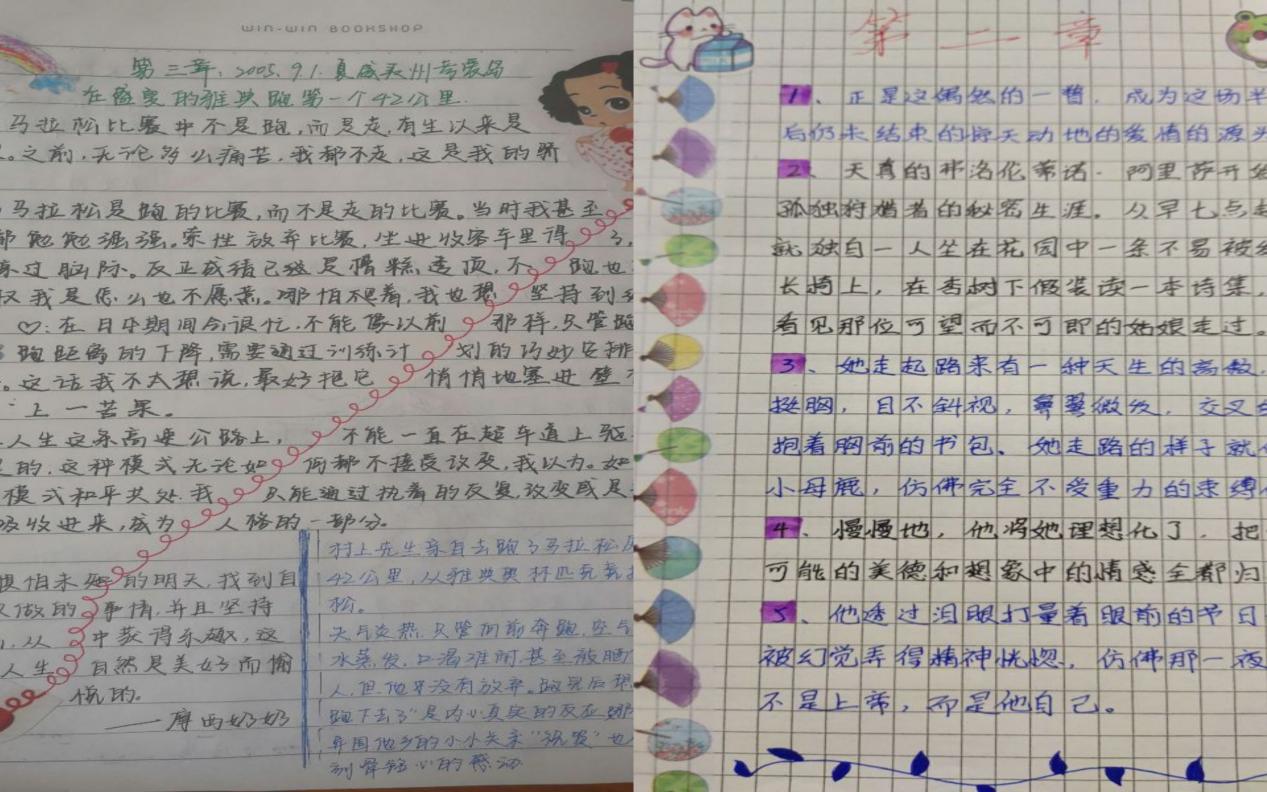 WIN-WIN BOOKSHOP
第三章:2005.9.1.夏威夷州考爱岛
在盛夏的雅典跑第一个42公里
马拉松比赛中不是跑,而是走,有生以来是
。之前,无论多么痛苦,我都不走,这是我的骄
马拉松是跑的比赛,而不是走的比赛。当时我甚至
都勉勉强强。索性放弃比赛,坐进收容车里得了,
过脑际。反正成绩已经是糟糕透顶,不跑也
权我是怎么也不愿意。哪怕爬着,我也想坚持到
♡:在日本期间会很忙,不能像以前那样,只管跑
跑距离的下降,需要通过训练计划的巧妙安排
。这话我不太想说,最好把它悄悄地塞进壁
上一苦果。
人生这条高速公路上,不能一直在超车道上驱
的,这种模式无论如何都不接受改变,我以为。如
模式和平共处,我只能通过执着的反复,改变或是
吸收进来,成为人格的一部分。
惧怕未知的明天,找到自
做的事情,并且坚持
,从中获得乐趣,这
人生自然是美好而愉
悦的。
——摩西奶奶
村上先生亲自去跑了马拉松
42公里,从雅典奥林匹克
松。
天气炎热,只管向前奔跑,空气
水蒸发,口渴难耐,甚至被晒
人,但他并没有放弃。跑完后
跑下去了"是内心真实的反应
异国他乡的小小关亲"祝贺"也
刻骨铭心的感动
第二章
1、正是这偶然的一瞥,成为这场半
后仍未结束的惊天动地的爱情的源头
2、天真的弗洛伦蒂诺·阿里萨开始
孤独狩猎者的秘密生涯。从早七点起
就独自一人坐在花园中一条不易被发
长椅上,在杏树下假装读一本诗集,
看见那位可望而不可即的姑娘走过。
3、她走起路来有一种天生的高傲,
挺胸,目不斜视,鼻翼微纹,交叉
抱着胸前的书包,她走路的样子就
小母鹿,仿佛完全不受重力的束缚
4、慢慢地,他将她理想化了,把
可能的美德和想象中的情感全都归
5、他透过泪眼打量着眼前的节日
被幻觉弄得精神恍惚,仿佛那一夜
不是上帝,而是他自己。